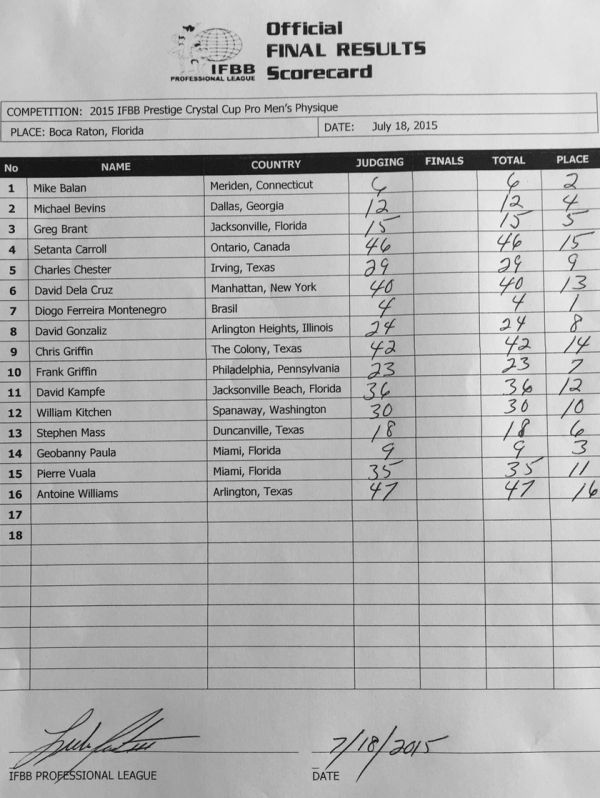 Official
FINAL RESULTS
IFBB Scorecard
PROFESSIONAL LEAGUE
COMPETITION: 2015 IFBB Prestige Crystal Cup Pro Men's Physique
PLACE: Boca Raton, Florida DATE: July 18, 2015
No NAME COUNTRY JUDGING FINALS TOTAL PLACE
1 Mike Balan Meriden, Connecticut 6 6 2
2 Michael Bevins Dallas, Georgia 12 12 4
3 Greg Brant Jacksonville, Florida 15 15 5
4 Setanta Carroll Ontario, Canada 46 46 15
5 Charles Chester Irving, Texas 29 29 9
6 David Dela Cruz Manhattan, New York 40 40 13
7 Diogo Ferreira Montenegro Brasil 4 4 1
8 David Gonzaliz Arlington Heights, Illinois 24 24 8
9 Chris Griffin The Colony, Texas 42 42 14
10 Frank Griffin Philadelphia, Pennsylvania 23 23 7
11 David Kampfe Jacksonville Beach, Florida 36 36 12
12 William Kitchen Spanaway, Washington 30 30 10
13 Stephen Mass Duncanville, Texas 18 18 6
14 Geobanny Paula Miami, Florida 9 9 3
15 Pierre Vuala Miami, Florida 35 35 11
16 Antoine Williams Arlington, Texas 47 47 16
17
18
7/18/2015
IFBB PROFESSIONAL LEAGUE DATE